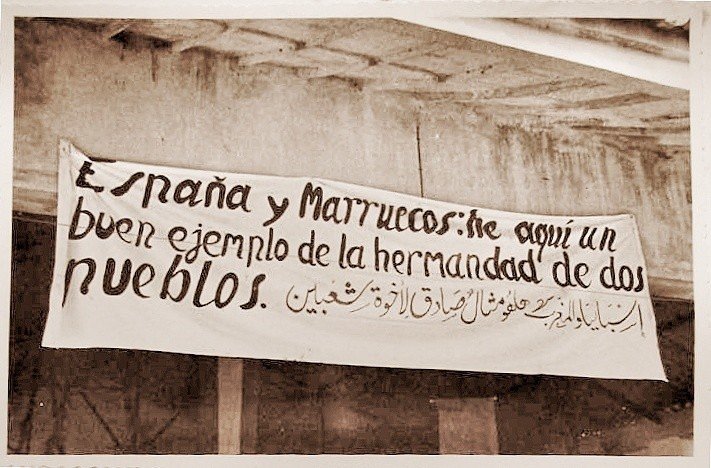 España y Marruecos: he aquí un
buen ejemplo de la hermandad de dos
pueblos.
اسبانيا والمغرب مثالُ صَادق لِاخوة شعبين